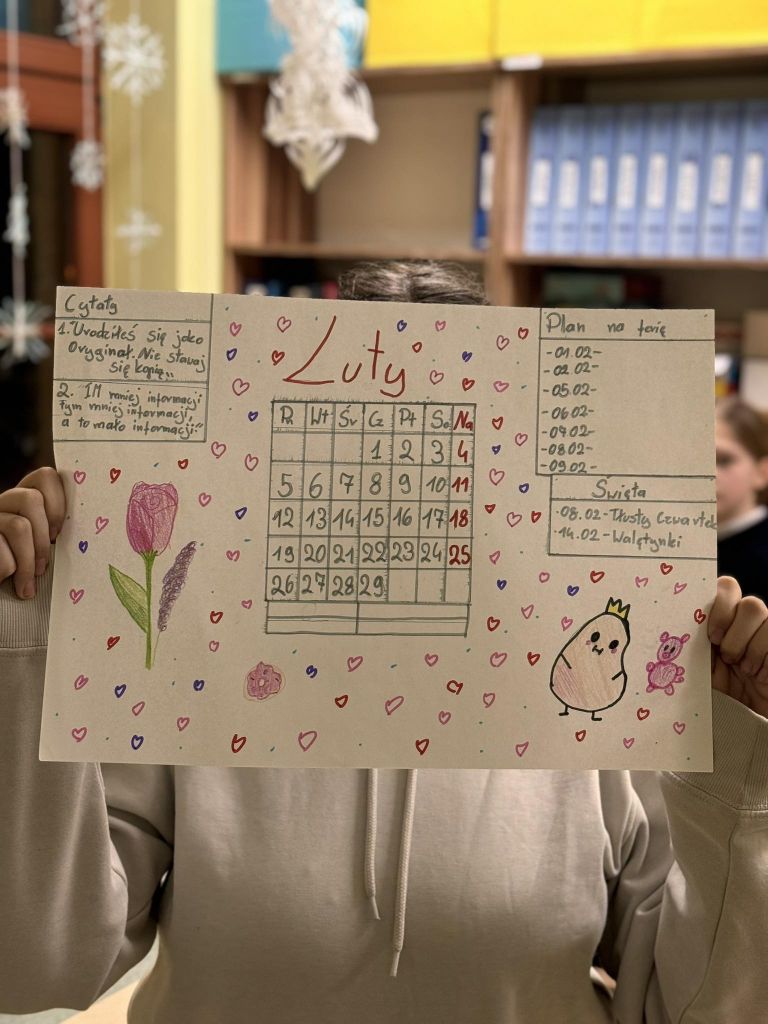 Cytaty
1."Urodziłeś się jako
Oryginał. Nie stawaj
się kopią„
2. IM mniej informacji
tym mniej informacji,
a to mało informacji."
Luty
Pn Wt Śr Cz Pt So Na
1 2 3 4
5 6 7 8 9 10 11
12 13 14 15 16 17 18
19 20 21 22 23 24 25
26 27 28 29
Plan na ferię
-01.02-
-02.02-
-05.02-
-06.02-
-07.02-
-08.02-
-09.02-
Święta
·08.02-Tłusty Czwartek
·14.02-Walętynki